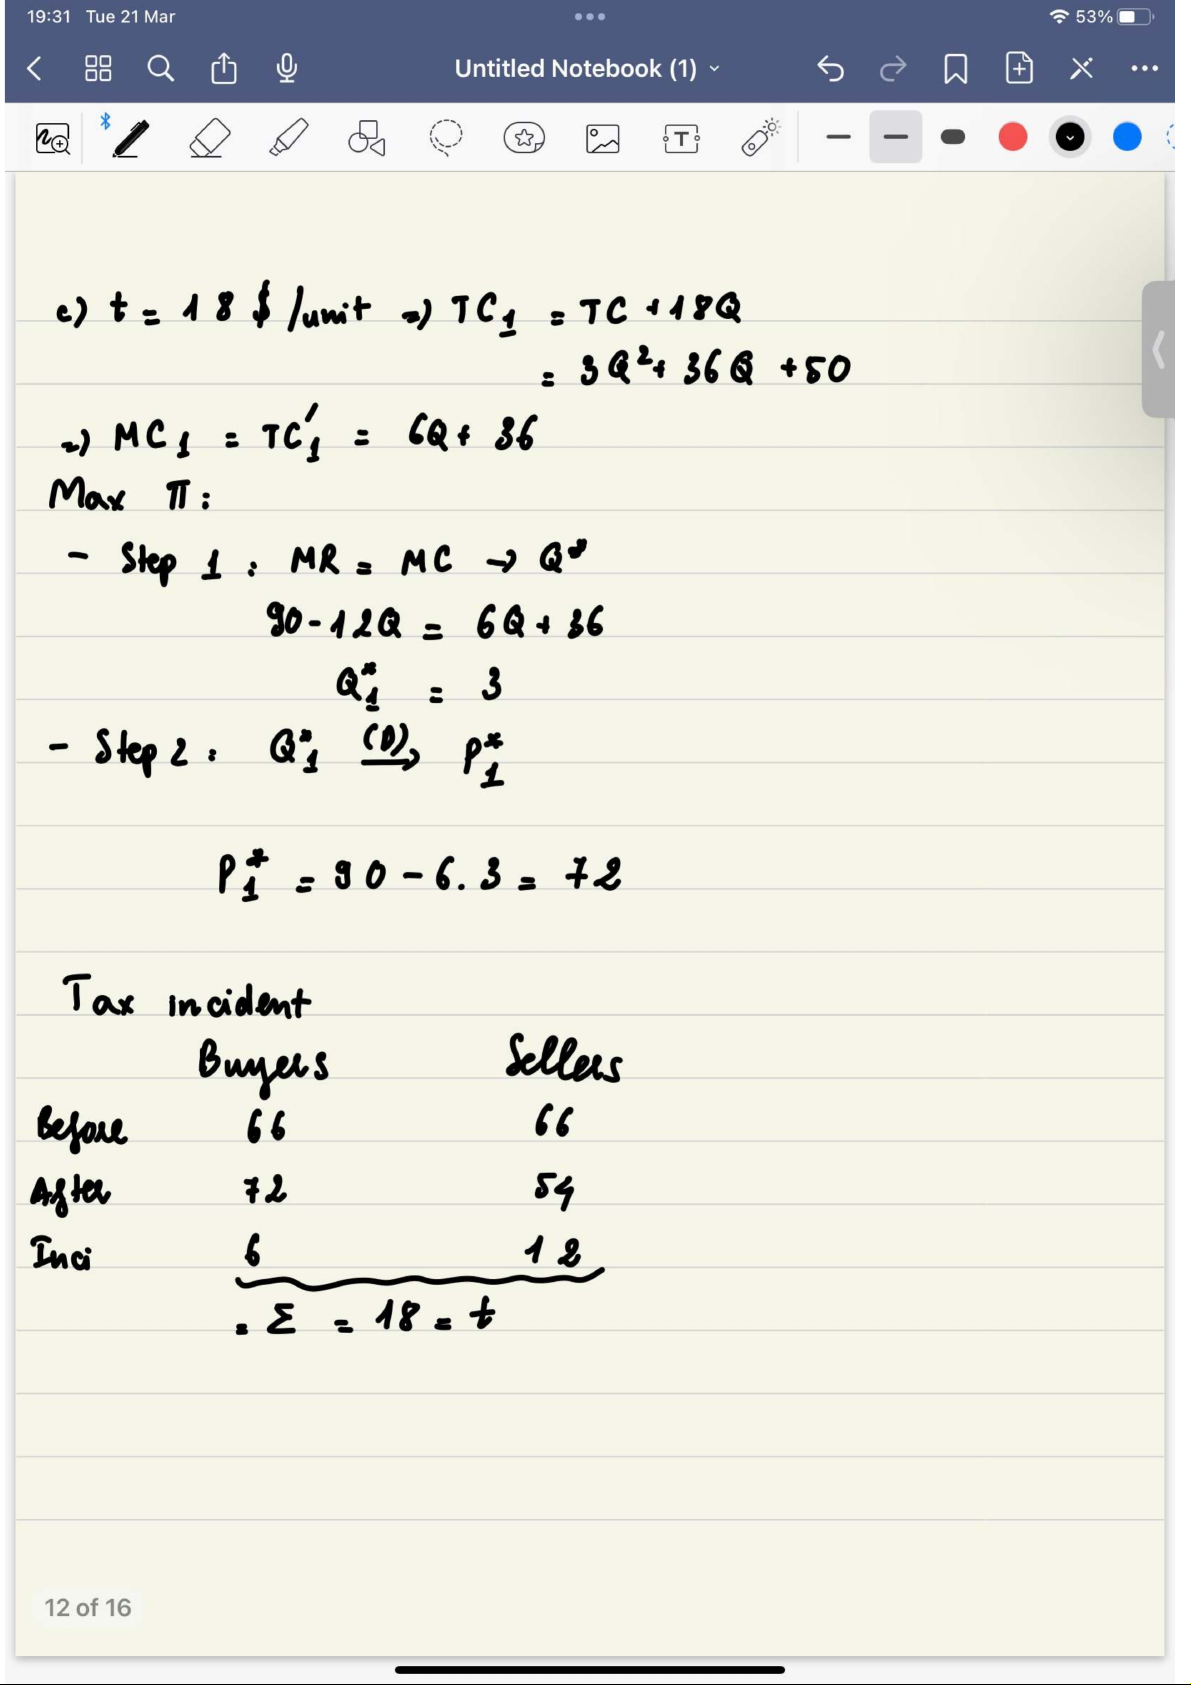 19:31 Tue 21 Mar
53%
Untitled Notebook (1)
T
c) t = 18 $/unit => TC₁ = TC + 18Q
= 3Q² + 36Q + 50
=> MC₁ = TC₁' = 6Q + 36
Max π :
- Step 1 : MR = MC → Q*
90 - 12Q = 6Q + 36
Q₁* = 3
- Step 2 : Q₁* (D)→ P₁*
P₁* = 90 - 6.3 = 72
Tax incident
Buyers Sellers
Before 66 66
After 72 54
Inci 6 12
= Σ = 18 = t
12 of 16